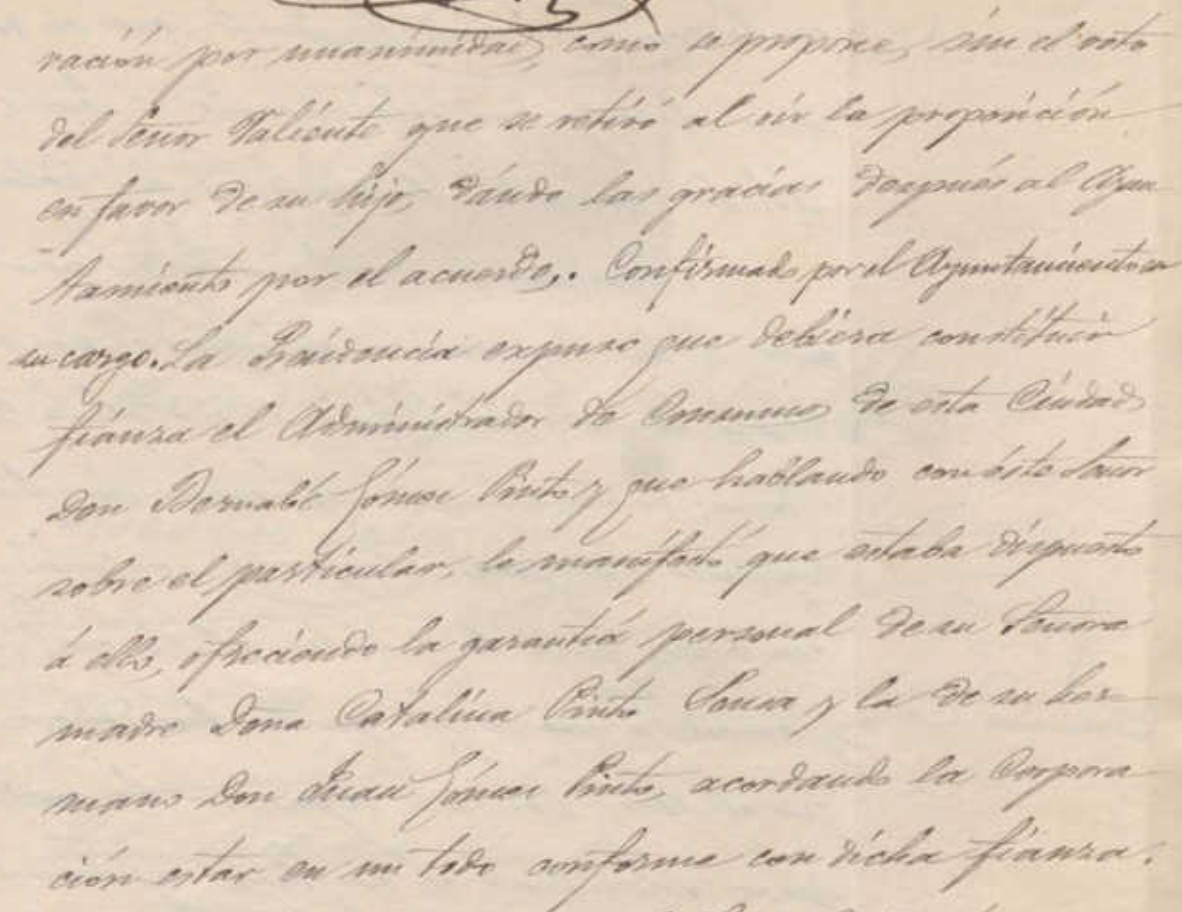 ración por unanimidad, como se propone, sin el voto
del Señor Valiente que se retiró al oir la proposición
en favor de su hijo, dándo las gracias después al Ayun
tamiento por el acuerdo,. Confirmado por el Ayuntamiento en
su cargo. La Presidencia expuso que debiera constituir
fianza el Administrador de Consumos de esta Ciudad
Don Bernabé Gómez Pinto y que hablando con éste Señor
sobre el particular, le manifestó que estaba dispuesto
á ello, ofreciendo la garantía personal de su Señora
madre Dona Catalina Pinto Sousa y la de su her
mano Don Juan Gómez Pinto, acordando la Corpora
ción estar en un todo conforme con dicha fianza.